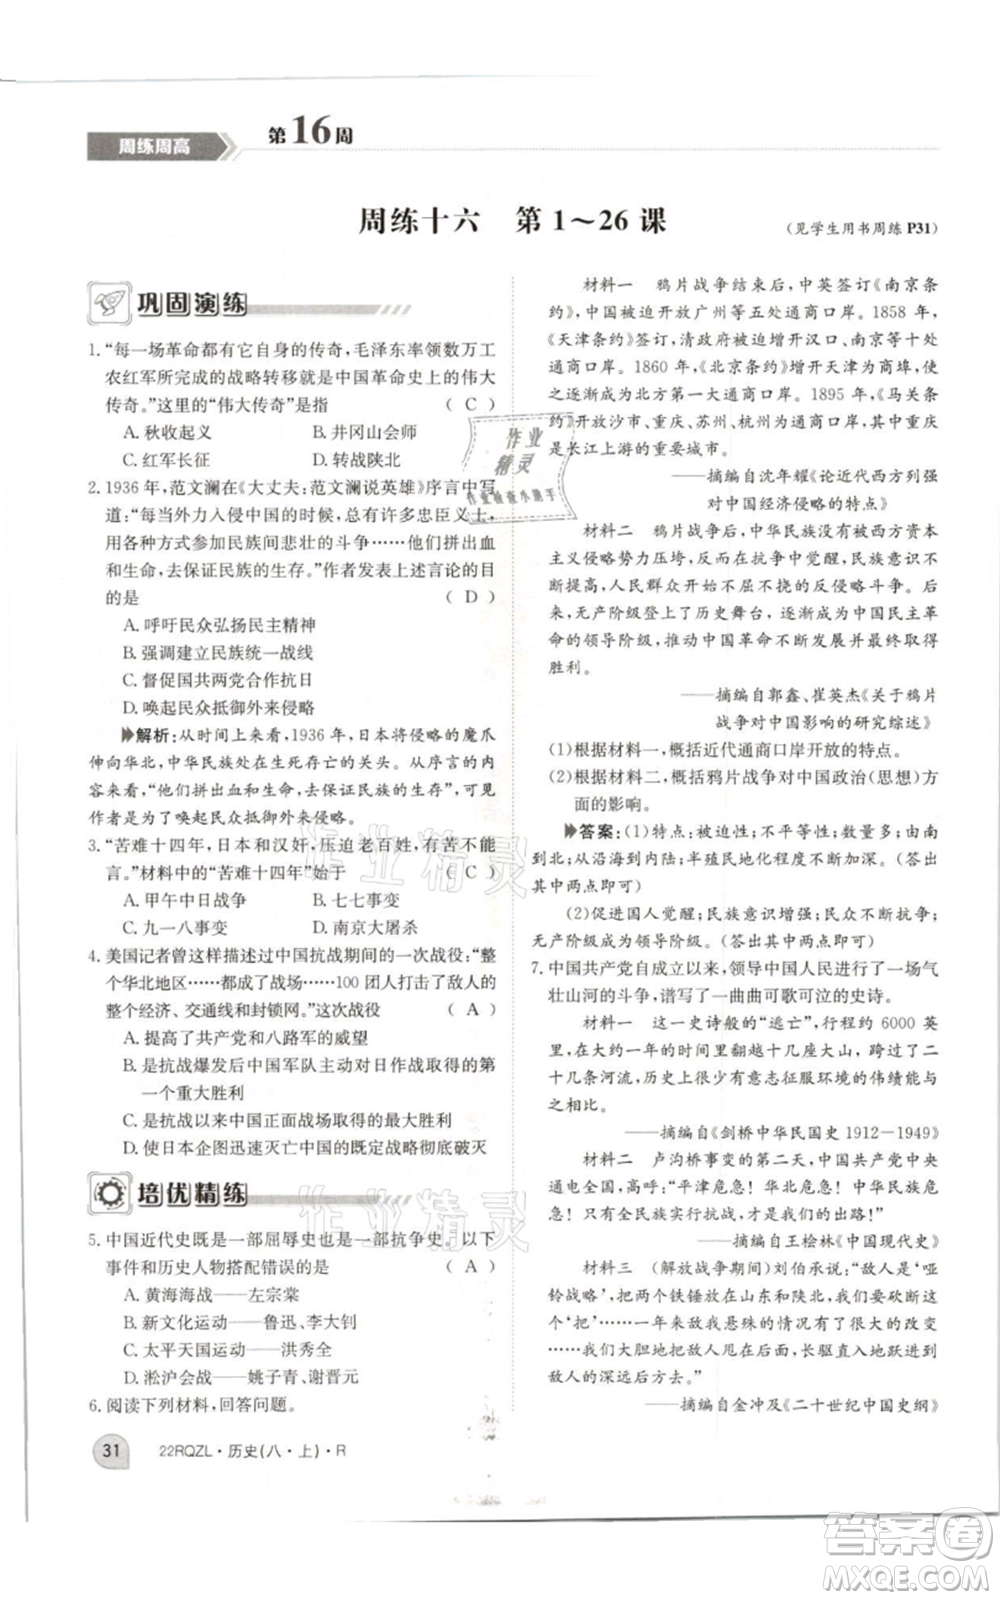 周练周高
第16周
周练十六 第1~26课
(见学生用书周练P31)
巩固演练
1.“每一场革命都有它自身的传奇,毛泽东率领数万工
农红军所完成的战略转移就是中国革命史上的伟大
传奇。”这里的“伟大传奇”是指 ( C )
A. 秋收起义 B. 井冈山会师
C. 红军长征 D. 转战陕北
2. 1936年,范文澜在《大丈夫:范文澜说英雄》序言中写
道:“每当外力入侵中国的时候,许多忠臣义士,
用各种方式参加民族间悲壮的斗争……他们拼出血
和生命,去保证民族的生存。”作者发表上述言论的目
的是 ( D )
A. 呼吁民众弘扬民主精神
B. 强调建立民族统一战线
C. 督促国共两党合作抗日
D. 唤起民众抵御外来侵略
解析:从时间上来看,1936年,日本将侵略的魔爪
伸向华北,中华民族处在生死存亡的关头。从材料的内
容来看,“他们拼出血和生命,去保证民族的生存”,可见
作者是为了唤起民众抵御外来侵略。
3.“苦难十四年,日本和汉奸,压迫老百姓,有冤无处
喊。”材料中的“苦难十四年”始于 ( C )
A. 甲午中日战争 B. 七七事变
C. 九一八事变 D. 南京大屠杀
4. 美国记者曾这样描述过中国抗战期间的一次战役:“整
个华北地区……成了战场……100团人打击了敌人的
整个经济、交通线和封锁网。”这次战役 ( A )
A. 提高了共产党和八路军的威望
B. 是抗战爆发后中国军队主动对日作战取得的第一
个重大胜利
C. 是抗战以来中国正面战场取得的最大胜利
D. 使日本企图迅速灭亡中国的既定战略破灭
培优精练
5. 中国近代史既是一部屈辱史也是一部抗争史。以下
事件和历史人物搭配错误的是 ( A )
A. 黄海海战——左宗棠
B. 新文化运动——鲁迅、李大钊
C. 太平天国运动——洪秀全
D. 淞沪会战——姚子青、谢晋元
6. 阅读下列材料,回答问题。
31 22RQZL·历史(八·上)·R
材料一 鸦片战争结束后,中英签订《南京条
约》,中国被迫开放广州等五处通商口岸。1858年,
《天津条约》签订,清政府被迫增开汉口、南京等十处
通商口岸。1860年,《北京条约》增开天津为商埠,以
后逐渐成为北方第一大通商口岸。1895年,《马关条
约》开放沙市、重庆、苏州、杭州为通商口岸,重庆成
为长江上游的重要城市。
——摘编自沈年耀《论近代西方列强
对中国经济侵略的特点》
材料二 鸦片战争后,中华民族没有被西方资本
主义侵略势力压垮,反而在抗争中觉醒,民族意识不
断增强,人民群众开始了不屈不挠的反侵略斗争。后
来,无产阶级登上了历史舞台,逐渐成为中国民主革
命的领导阶级,推动中国革命不断发展并最终取得
胜利。
——摘编自郭鑫、崔英杰《关于鸦片
战争对中国影响的研究综述》
(1)根据材料一,概括近代通商口岸开放的特点。
(2)根据材料二,概括鸦片战争对中国政治(思想)方
面的影响。
答案:(1)特点:被迫性;不平等性;数量多;由南
到北;从沿海到内陆;半殖民地化程度不断加深。(答出
其中两点即可)
(2)促进国人觉醒;民族意识增强;民众不断抗争;
无产阶级成为领导阶级。(答出其中两点即可)
7. 中国共产党自成立以来,领导中国人民进行了一场气
壮山河的斗争,谱写了一曲曲可歌可泣的史诗。
材料一 这一史诗般的“逃亡”,行程约6000英
里,在大约一年的时间里翻越十几座大山,跨过了二
十几条河流,历史上罕见有意志征服环境的伟绩能与
之相比。
——摘编自《剑桥中华民国史1912-1949》
材料二 卢沟桥事变的第二天,中国共产党中央
通电全国,高呼:“平津危急!华北危急!中华民族危
急!只有全民族实行抗战,才是我们的出路!”
——摘编自王桧林《中国现代史》
材料三 (解放战争期间)刘伯承说:“敌人是‘哑
铃战略’,把两个铁锤放在山东和陕北,我们就要砍它
个‘把’……一年来敌我悬殊的情况有了很大的改变
……我们大胆地把敌人甩到屁股后面,长驱直入敌人
的深远后方去!”
——摘编自金冲及《二十世纪中国史纲》
作业
精灵
作业检查小助手
作业精灵
作业精灵
答案圈
MXQE.COM